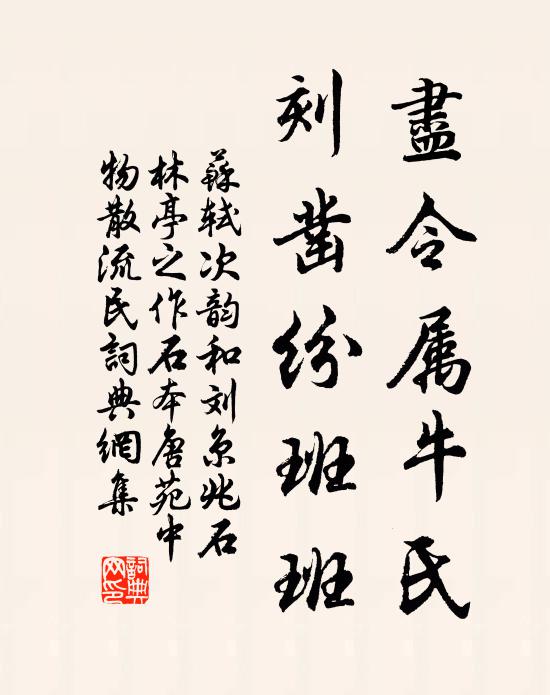 盡令属牛氏
刻凿紛班班
蘇轼次韵和刘京兆石
林亭之作石本唐苑中
物散流民詞典網集
詞典
网印